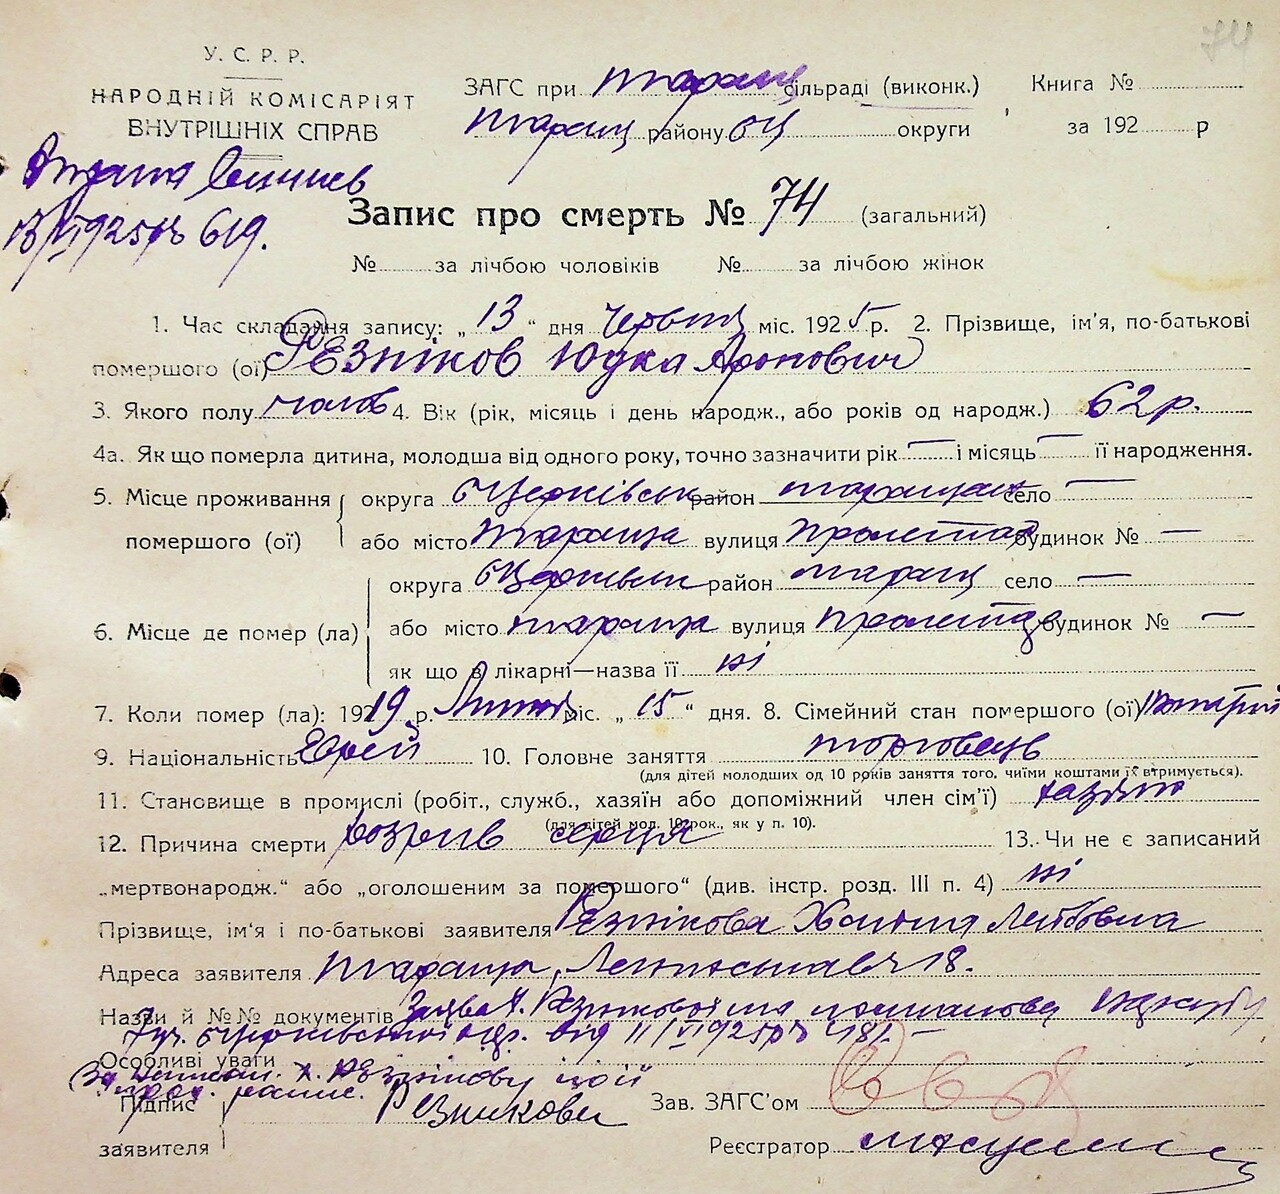 74
У. С. Р. Р.
НАРОДНІЙ КОМІСАРІЯТ
ВНУТРІШНІХ СПРАВ
ЗАГС при Таращ сільраді (виконк.)
Таращ району БЦ округи
Книга №
за 192 р
13/VI 1925 р № 619.
Запис про смерть № 74 (загальний)
№ за лічбою чоловіків № за лічбою жінок
1. Час складання запису: „ 13 “ дня Червня міс. 1925 р. 2. Прізвище, ім'я, по-батькові
помершого (ої) Резніков Юдка Аронович
3. Якого полу чолов 4. Вік (рік, місяць і день народж., або років од народж.) 62 р.
4а. Як що померла дитина, молодша від одного року, точно зазначити рік — і місяць — її народження.
5. Місце проживання помершого (ої)
округа БЦерківськ район Таращан село —
або місто Тараща вулиця Пролетар будинок № —
6. Місце де помер (ла)
округа БЦерківськ район Таращ село —
або місто Тараща вулиця Пролетар будинок № —
як що в лікарні—назва її ні
7. Коли помер (ла): 19219 р. міс. „ 15 “ дня. 8. Сімейний стан помершого (ої)
9. Національність Еврей 10. Головне заняття торговець
(для дітей молодших од 10 років заняття того, чиїми коштами їх втримується).
11. Становище в промислі (робіт., служб., хазяїн або допоміжний член сім'ї) хазяїн
(для дітей мол. 10 рок., як у п. 10).
12. Причина смерти розрив серця 13. Чи не є записаний
„мертвонародж.“ або „оголошеним за помершого“ (див. інстр. розд. III п. 4) ні
Прізвище, ім'я і по-батькові заявителя Резнікова Хаіння Лейбовна
Адреса заявителя Тараща, 18.
Назви й №№ документів Заява Х. Резнікової та постанова
від 11/VI 1925 р №
Особливі уваги
Підпис заявителя Резникова
Зав. ЗАГС'ом
Реєстратор